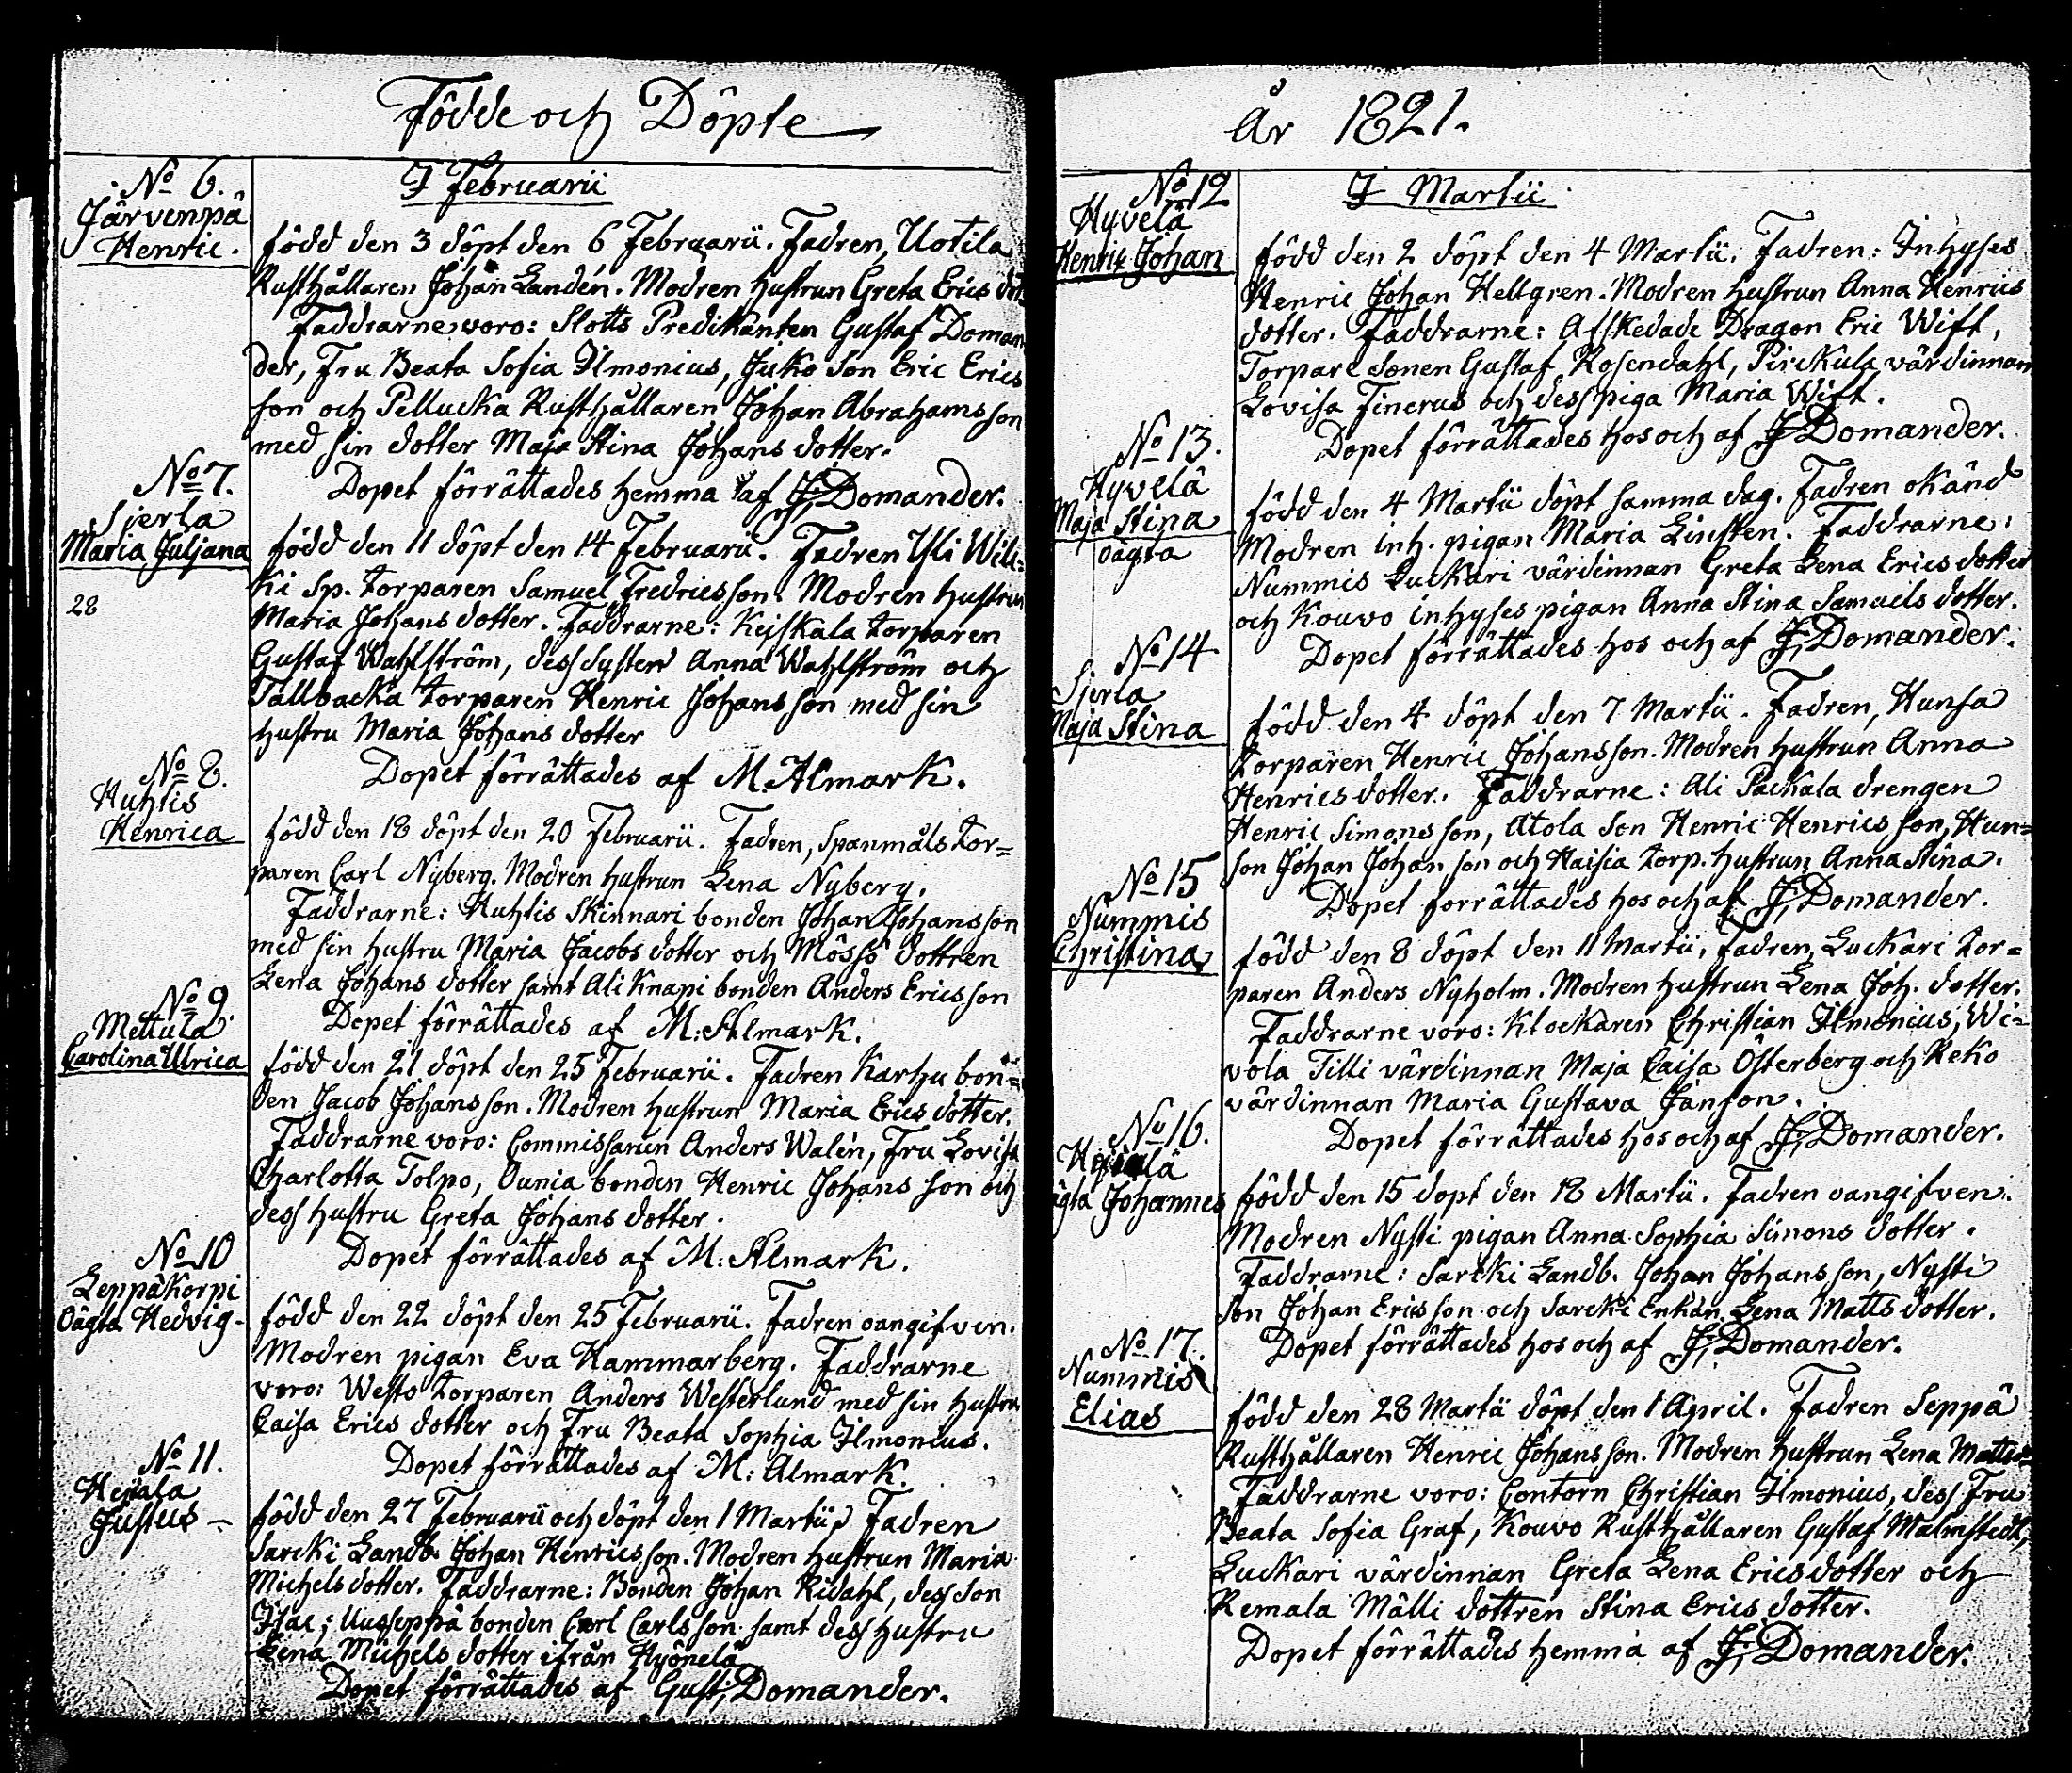 Födde och Döpte
No 6.
Järvenpä
Henric.
I Februarii
född den 3 döpt den 6 Februarii. Fadren, Uotila
Rusthållaren Johan Landén. Modren hustrun Greta Erics dr.
Faddrarne voro: Slotts Predikanten Gustaf Doman
der, Fru Beata Sofia Ilmonius, Juko Son Eric Erics
son och Pellucka Rusthållaren Johan Abrahams son
med sin dotter Maja Stina Johans dotter.
Dopet förrättades hemma af J. Domander.
No 7.
Sjerla
Maria Juljana
28
född den 11 döpt den 14 Februarii. Fadren Yli Wili=
ki Sp. torparen Samuel Fredricsson. Modren hustrun
Maria Johans dotter. Faddrarne: Kejskala torparen
Gustaf Wahlström, dess Syster Anna Wahlström och
Tallbacka torparen Henric Johans son med sin
hustru Maria Johans dotter
Dopet förrättades af M. Almark.
No 8.
Huhtis
Henrica
född den 18 döpt den 20 Februarii. Fadren, Spanmåls tor=
paren Carl Nyberg. Modren hustrun Lena Nyberg.
Faddrarne: Huhtis Skinnari bonden Johan Johans son
med sin hustru Maria Jacobs dotter och Mössö dottren
Lena Johans dotter samt Ali Knapi bonden Anders Ericsson
Dopet förrättades af M: Almark.
No 9.
Mettula
Carolina Ulrica
född den 21 döpt den 25 Februarii. Fadren Karhu bon=
den Jacob Johans son. Modren hustrun Maria Erics dotter.
Faddrarne voro: Commissarien Anders Walén, Fru Lovisa
Charlotta Tolpo, Ounia bonden Henric Johans son och
dess hustru Greta Johans dotter.
Dopet förrättades af M: Almark.
No 10
Leppäkorpi
Oägta Hedvig-
född den 22 döpt den 25 Februarii. Fadren oangifven.
Modren pigan Eva Hammarberg. Faddrarne
voro: Westo torparen Anders Westerlund med sin hustru
Caisa Erics dotter och Fru Beata Sophia Ilmonius.
Dopet förrättades af M: Almark.
No 11.
Hejala
Justus -
född den 27 Februarii och döpt den 1 Martii. Fadren
Sarcki Landb. Johan Henrics son. Modren hustrun Maria
Michels dotter. Faddrarne: Bonden Johan Ridahl, dess Son
Isac; Uusseppä bonden Carl Carlsson samt dess hustru
Lena Michels dotter ifrån Hyönelä
Dopet förrättades af Gust; Domander.
År 1821.
No 12
Hyvelä
Henric Johan
I Martii
född den 2 döpt den 4 Martii. Fadren: Inhyses
Henric Johan Hellgren. Modren hustrun Anna Henrics
dotter. Faddrarne: Afskedade Dragon Eric Wift,
Torpare Sonen Gustaf Rosendahl, Pirckula värdinnan
Lovisa Finerus och dess piga Maria Wift.
Dopet förrättades hos och af J. Domander.
No 13.
Hyvelä
Maja Stina
oägta
född den 4 Martii döpt samma dag. Fadren okänd
Modren inh. pigan Maria Linsten. Faddrarne:
Nummis Luckari värdinnan Greta Lena Erics dotter
och Kouvo inhyses pigan Anna Stina Samuels dotter.
Dopet förrättades hos och af J. Domander.
No 14
Sjerla
Maja Stina
född den 4 döpt den 7 Martii. Fadren, Hunsa
torparen Henric Johans son. Modren hustrun Anna
Henrics dotter. Faddrarne: Ali Packala drengen
Henric Simons son, Atola Son Henric Henrics son, Hun=
son Johan Johan son och Haisia torp. hustrun Anna Stina.
Dopet förrättades hos och af J. Domander.
No 15
Nummis
Christina
född den 8 döpt den 11 Martii, Fadren, Luckari tor=
paren Anders Nyholm. Modren hustrun Lena Joh. dotter.
Faddrarne voro: Klockaren Christian Ilmonius, Wi=
vola Tilli värdinnan Maja Caisa Österberg och Reko
värdinnan Maria Gustava Janson.
Dopet förrättades hos och af J. Domander.
No 16.
ägta Johannes
född den 15 döpt den 18 Martii. Fadren oangifven.
Modren Nysti pigan Anna Sophia Simons dotter.
Faddrarne: Sarcki Landb. Johan Johans son, Nysti
Son Johan Erics son och Sarcki Enkan Lena Matts dotter.
Dopet förrättades hos och af J. Domander.
No 17.
Nummis
Elias
född den 28 Martii döpt den 1 April. Fadren Seppä
Rusthållaren Henric Johans son. Modren hustrun Lena Matts=
Faddrarne voro: Contorn Christian Ilmonius, dess Fru
Beata Sofia Graf, Kouvo Rusthållaren Gustaf Malmstedt,
Luckari värdinnan Greta Lena Erics dotter och
Remala Mälli dottren Stina Erics dotter.
Dopet förrättades hemma af J. Domander.